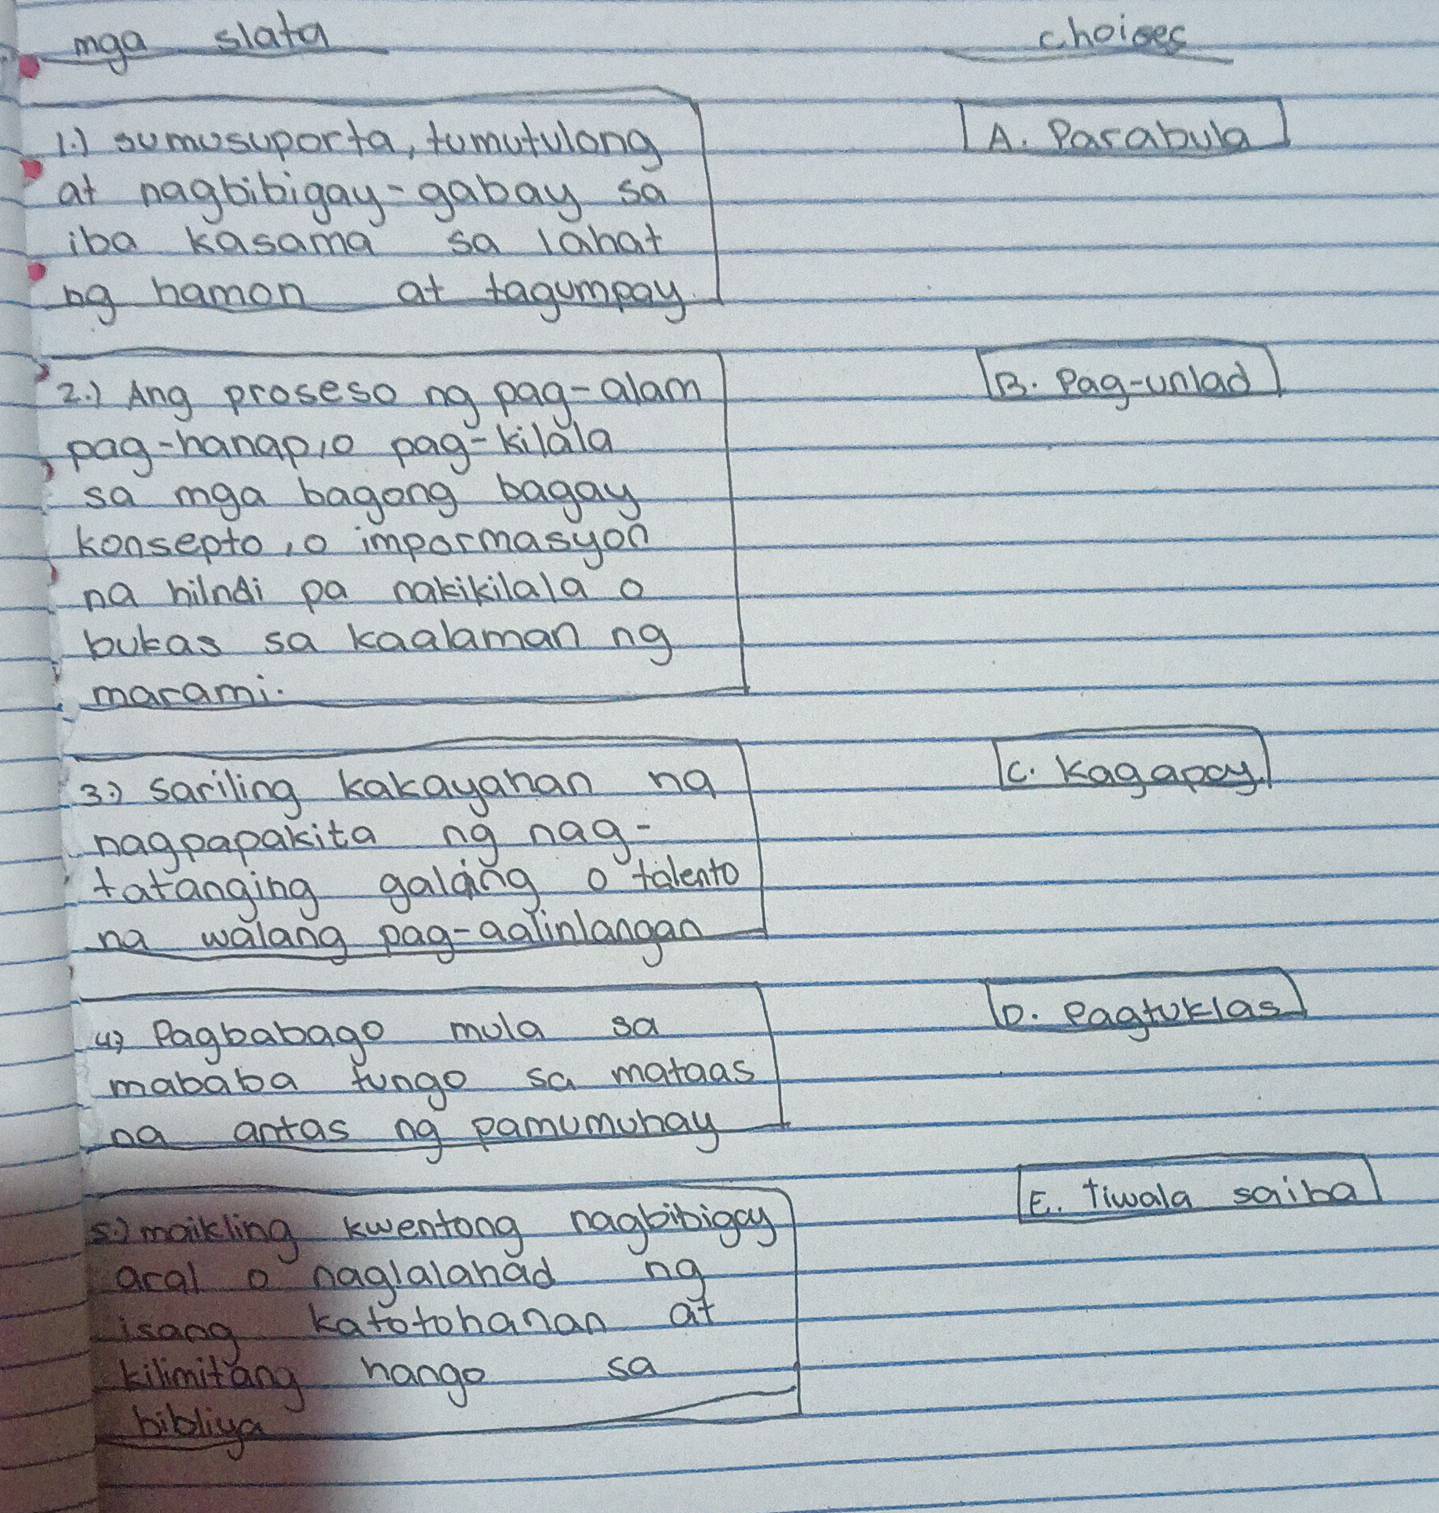 mga slata
choices
1.) sumusuporta, tumutulong
at nagbibigay-gabay sa
iba kasama sa lahat
ng hamon at tagumpay
A. Parabula
2.) Ang proseso ng pag-alam
pag-hanap, o pag-kilala
sa mga bagong bagay
konsepto, o impormasyon
na hilndi pa nakikilala o
bukas sa kaalaman ng
marami.
B. Pag-unlad
3.) sariling kakayahan na
nagpapakita ng nag-
tatanging galaing o talento
na walang pag-aalinlangan
C. Kagapay
4.) Pagbabago mula sa
mababa tungo sa mataas
na antas ng pamumuhay
D. Pagtuklas
5.) maikling kwentong nagbibigay
aral o naglalahad ng
isang katotohanan at
kilimitang hango sa
bibliya
E. tiwala saiba